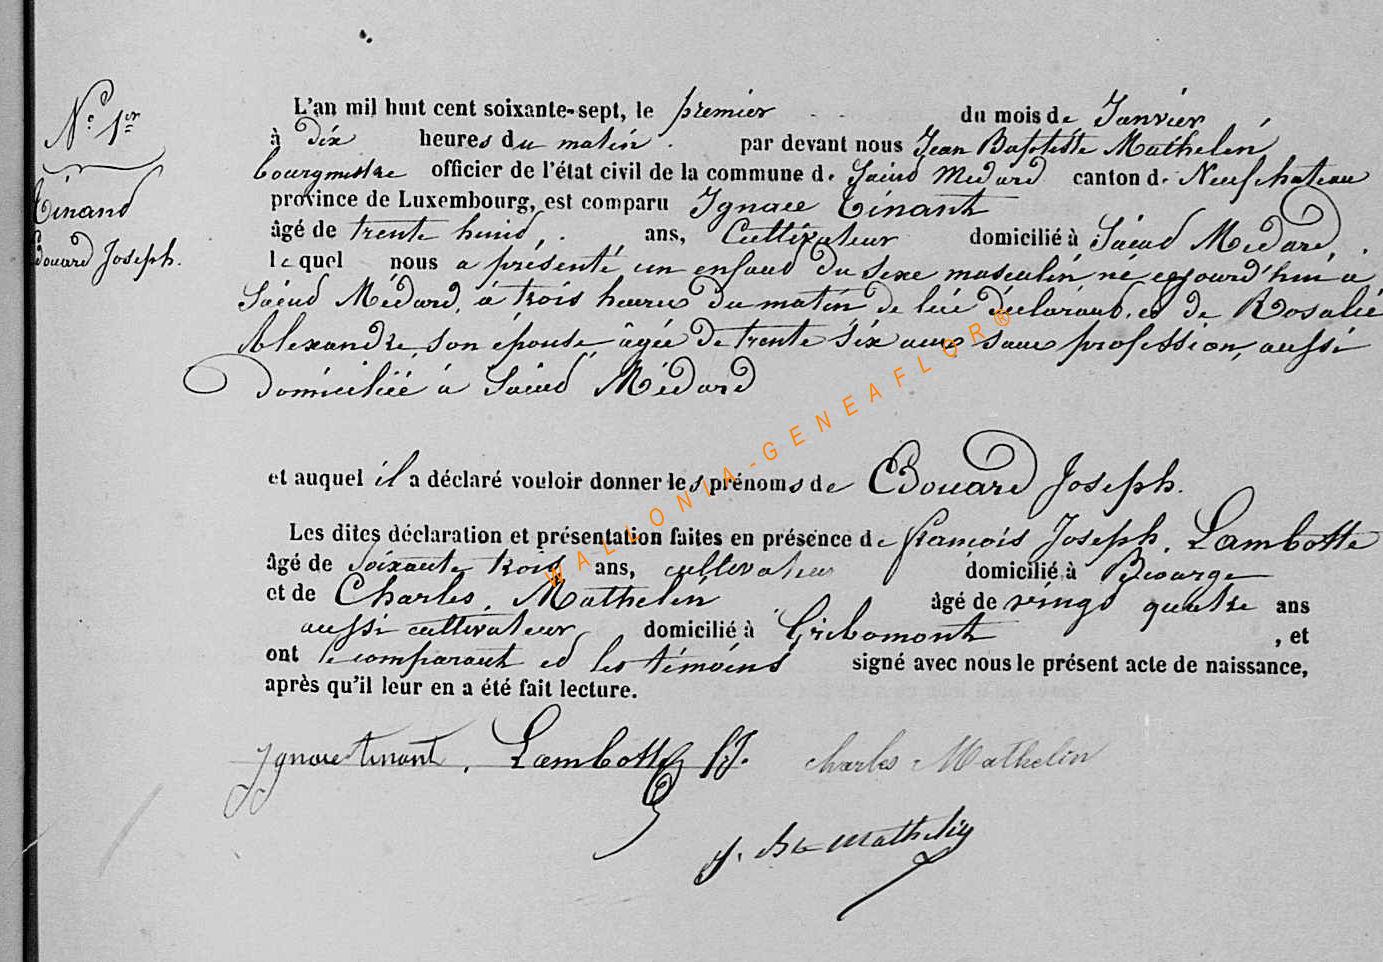 N.º 1er
Tinant
Edouard Joseph.
L'an mil huit cent soixante-sept, le premier du mois de Janvier
à dix heures du matin. par devant nous Jean Baptiste Mathelin
bourgmestre officier de l'état civil de la commune de Saint Médard canton de Neufchateau
province de Luxembourg, est comparu Ignace Tinant
âgé de trente huit, ans, Cultivateur domicilié à Saint Médard,
lequel nous a présenté un enfant du sexe masculin né aujourd'hui à
Saint Médard, à trois heures du matin de lui déclarant, et de Rosalie
Alexandre, son épouse, âgée de trente six ans sans profession, aussi
domiciliée à Saint Médard
et auquel il a déclaré vouloir donner les prénoms de Edouard Joseph.
Les dites déclaration et présentation faites en présence de françois Joseph, Lambotte
âgé de soixante trois ans, cultivateur domicilié à Biourge
et de Charles, Mathelin âgé de vingt quatre ans
aussi cultivateur domicilié à Gribomont , et
ont le comparant et les témoins signé avec nous le présent acte de naissance,
après qu'il leur en a été fait lecture.
Ignace tinant, Lambotte f.J. charles Mathelin
J. Bte Mathelin
WALLONIA-GENEAFLOR®